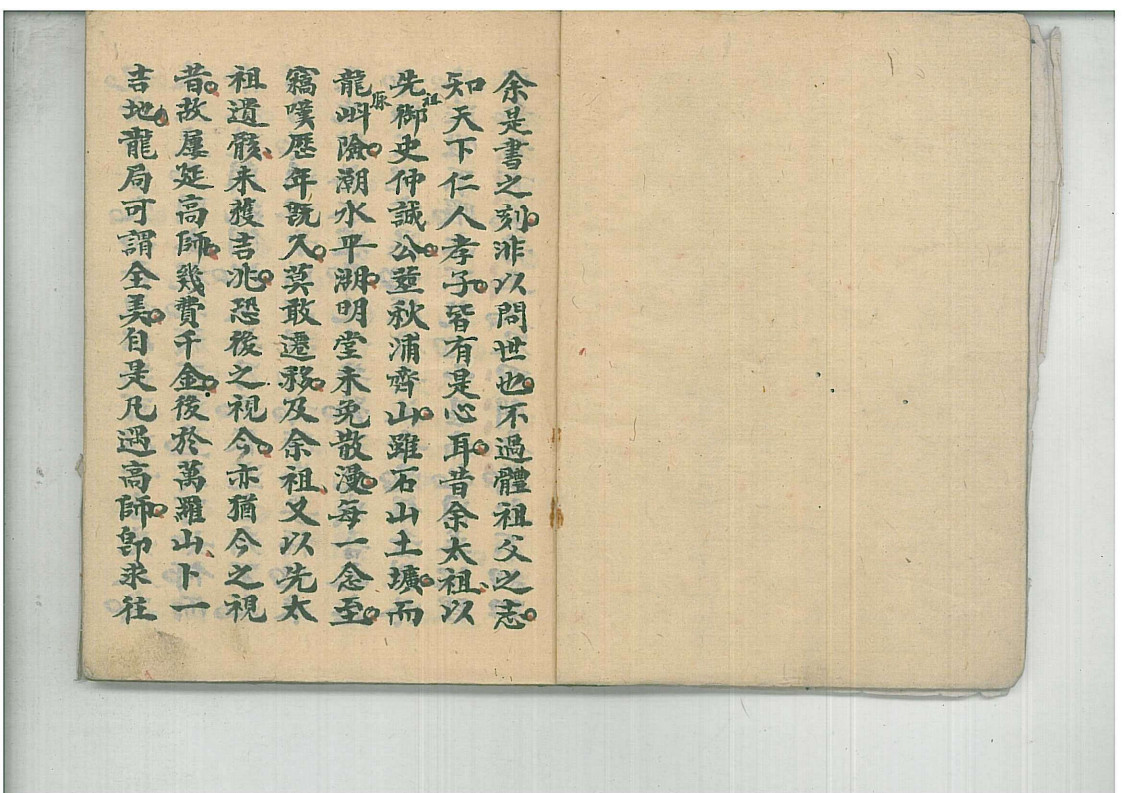 余是書之刻非以問世也不過體祖父之志
知天下仁人孝子皆有是心耳昔余太祖以
先祖御史仲誠公塟秋浦齊山雖石山土壙而
龍脉㘭險潮水平湖明堂未免散漫每一念至
竊嘆歷年既久莫敢遷移及余祖又以先太
祖遺骸未獲吉兆恐後之視今亦猶今之視
昔故屢延高師幾費千金後於萬羅山卜一
吉地龍局可謂全美自是凡遇高師即求往